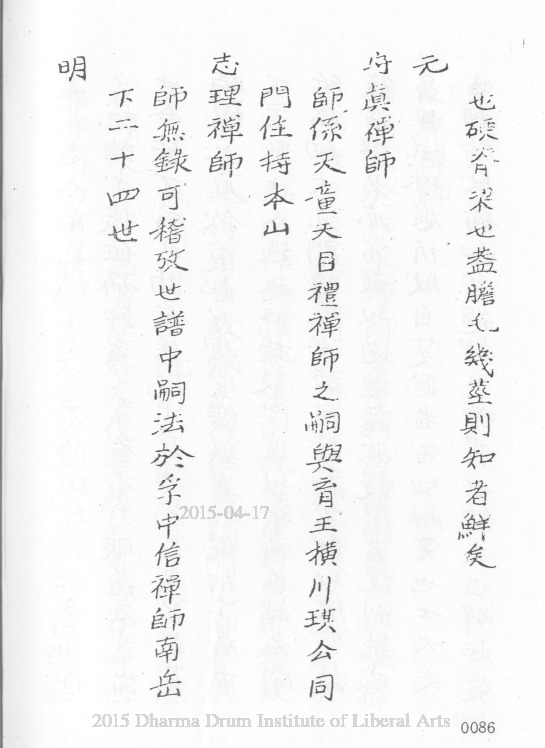 也硬脊梁也蓋膽毛幾莖則知者鮮矣
元
守真禪師
師係天童天目禮禪師之嗣與育王橫川珙公同
門住持本山
志理禪師
師無錄可稽攷世譜中嗣法於孚中信禪師南岳
下二十四世
明
2015-04-17
2015 Dharma Drum Institute of Liberal Arts
0086